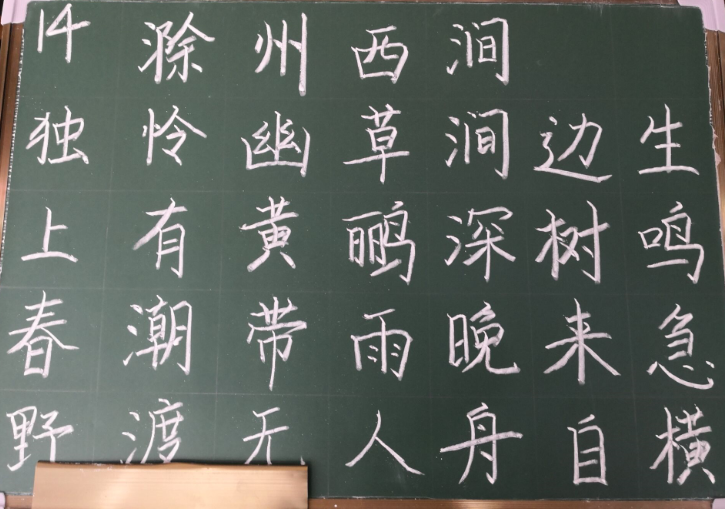 14 滁州西涧
独怜幽草涧边生
上有黄鹂深树鸣
春潮带雨晚来急
野渡无人舟自横